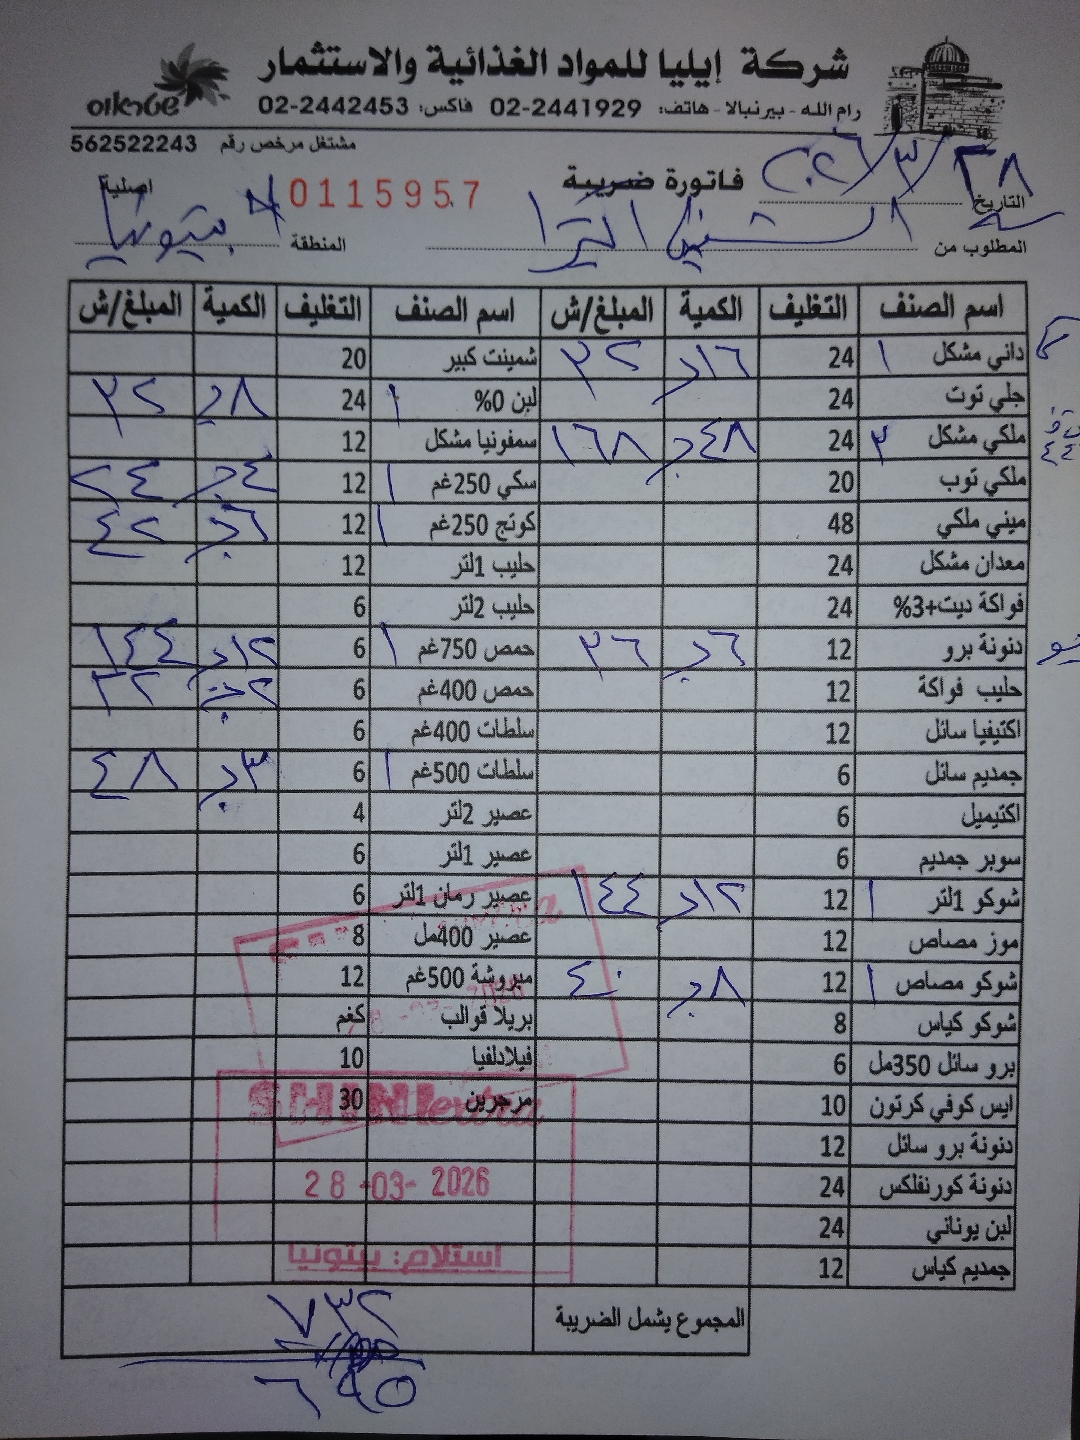 شركة إيليا للمواد الغذائية والاستثمار
شتراوس
رام الله - بيرنبالا - هاتف: 02-2441929 فاكس: 02-2442453
مشتغل مرخص رقم 562522243
فاتورة ضريبة 0115957 اصلية
التاريخ ٢٨/٣/٢٠٢٦
المطلوب من المنطقة بيتونيا
اسم الصنف التغليف الكمية المبلغ/ش اسم الصنف التغليف الكمية المبلغ/ش
داني مشكل ١ 24 ١٦ ٣٢ شمينت كبير 20
جلي توت 24 لبن 0% ١ 24 ٨ ٣٢
ملكي مشكل ٣ 24 ٤٨ ١٦٨ سمفونيا مشكل 12
ملكي توب 20 سكي 250غم ١ 12 ٤ ٢٤
ميني ملكي 48 كوتج 250غم ١ 12 ٦ ٤٢
معدان مشكل 24 حليب 1لتر 12
فواكة ديت+3% 24 حليب 2لتر 6
دنونة برو 12 ٦ ٣٦ حمص 750غم ١ 6 ١٢ ١٤٤
حليب فواكة 12 حمص 400غم 6 ٢ ٢٢
اكتيفيا سائل 12 سلطات 400غم 6
جمديم سائل 6 سلطات 500غم ١ 6 ٣ ٤٨
اكتيميل 6 عصير 2لتر 4
سوبر جمديم 6 عصير 1لتر 6
شوكو 1لتر ١ 12 ١٢ ١٤٤ عصير رمان 1لتر 6
موز مصاص 12 عصير 400مل 8
شوكو مصاص ١ 12 ٨ ٤٠ مبروشة 500غم 12
شوكو كياس 8 بريلا قوالب كغم
برو سائل 350مل 6 فيلادلفيا 10
ايس كوفي كرتون 10 مرجرين 30
دنونة برو سائل 12
دنونة كورنفلكس 24
لبن يوناني 24
جمديم كياس 12
SHINI extra
28 -03- 2026
استلام: بيتونيا
المجموع يشمل الضريبة ٧٣٢
٦٩٥